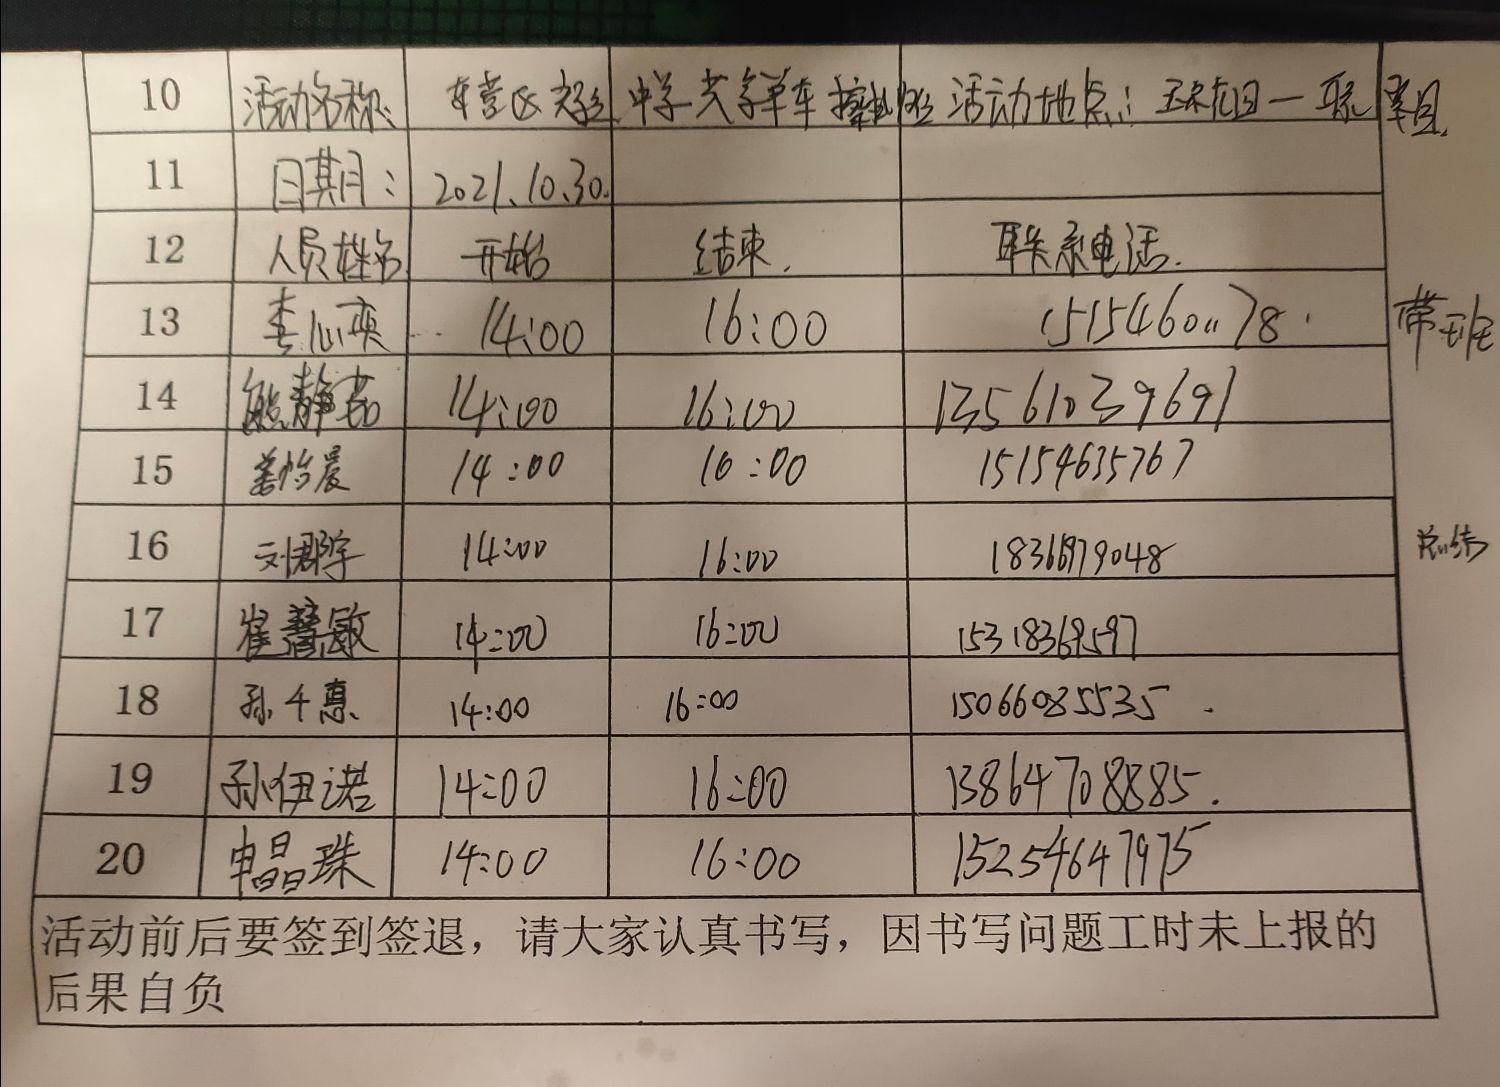 10 活动名称: 车营区 中学共享单车擦拭 活动地点: 一联
11 日期: 2021.10.30.
12 人员姓名 开始 结束. 联系电话.
13 李心 14:00 16:00 带班
14 熊静茹 14:00 16:00 13561039691
15 姜怡晨 14:00 16:00 15154635767
16 刘郡宇 14:00 16:00 总结
17 崔慧敏 14:00 16:00 15318369597
18 孙千惠 14:00 16:00 15066085535
19 孙伊诺 14:00 16:00 13864708885.
20 申晶珠 14:00 16:00 15254647975
活动前后要签到签退，请大家认真书写，因书写问题工时未上报的
后果自负